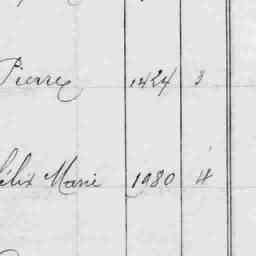 Pierre 1424 3
élix Marie 1980 4